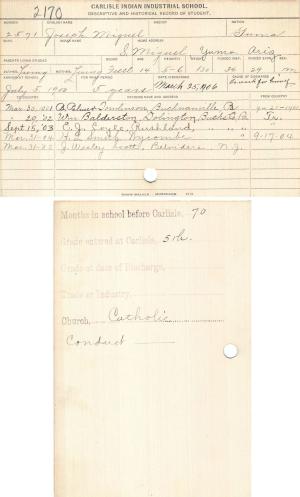 CARLISLE INDIAN INDUSTRIAL SCHOOL.
DESCRIPTIVE AND HISTORICAL RECORD OF STUDENT.
NUMBER ENGLISH NAME AGENCY NATION
2170
2591 Joseph Miguel Yuma
BAND INDIAN NAME HOME ADDRESS
I. Miguel, Yuma Ariz
PARENTS LIVING OR DEAD BLOOD AGE HEIGHT WEIGHT FORCED INSP. FORCED EXPR. SEX
FATHER Living MOTHER Living Full 14 5-0 M
ARRIVED AT SCHOOL FOR WHAT PERIOD DATE DISCHARGED CAUSE OF DISCHARGE
July 5, 1900 5 years March 25, 1906
TO COUNTRY PATRONS NAME AND ADDRESS FROM COUNTRY
Mar. 30, 1901 Tomlinson, Buckmanville Pa
" 20, '02 Wm Balderston Dolington, Bucks Co Pa
Sept. 15, '03 C. J. Doyle, Rushland, " "
Mar. 31-04 H. S. Smith, Wycombe " 9-17-04
Mar. 31-05 J. Wesley Scott, Belvidere N. J.
Months in school before Carlisle, 70
Grade entered at Carlisle, 5th
Grade at date of Discharge,
Trade or Industry,
Church, Catholic
Conduct